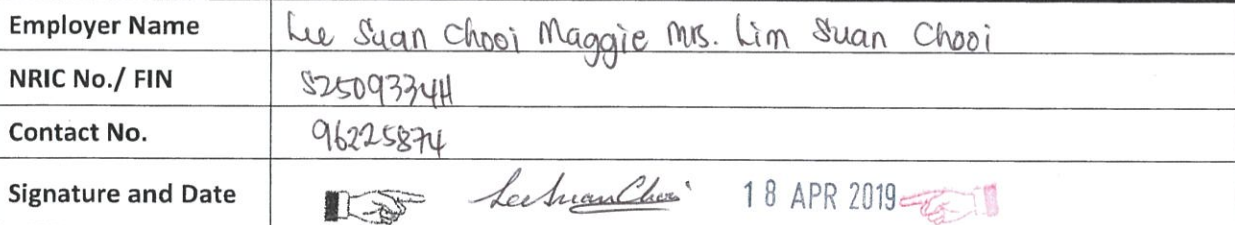 Employer Name Lee Suan Chooi Maggie Mrs. Lim Suan Chooi
NRIC No./ FIN S2509334H
Contact No. 96225874
Signature and Date LeeSuanChooi 18 APR 2019